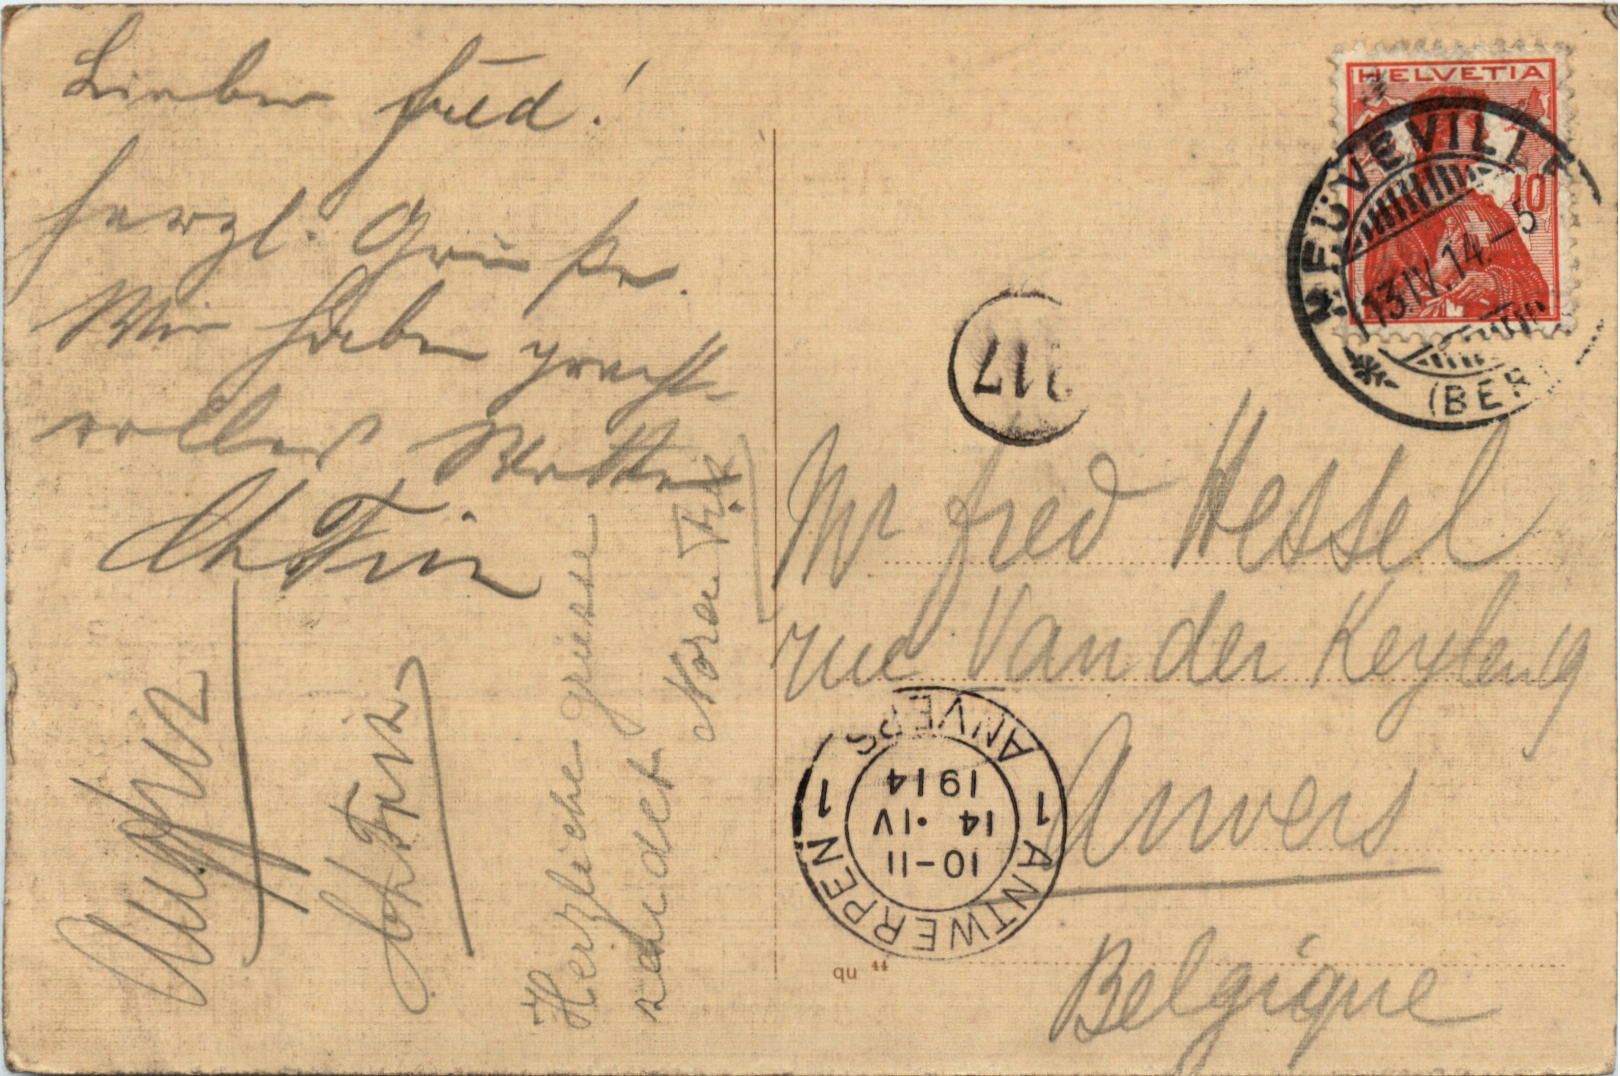 Lieber Fred!
herzl. Grüße.
Wir haben pracht-
volles Wetter
Herzliche griesse
sendet Nora
HELVETIA
10
NEUVEVILLE
13.IV.14.-5
(BER
117
Mr Fred Hessel
rue Van der Keylen 19
Anvers
Belgique
1 ANTWERPEN 1
ANVERS
10-11
14·IV
1914
qu 44